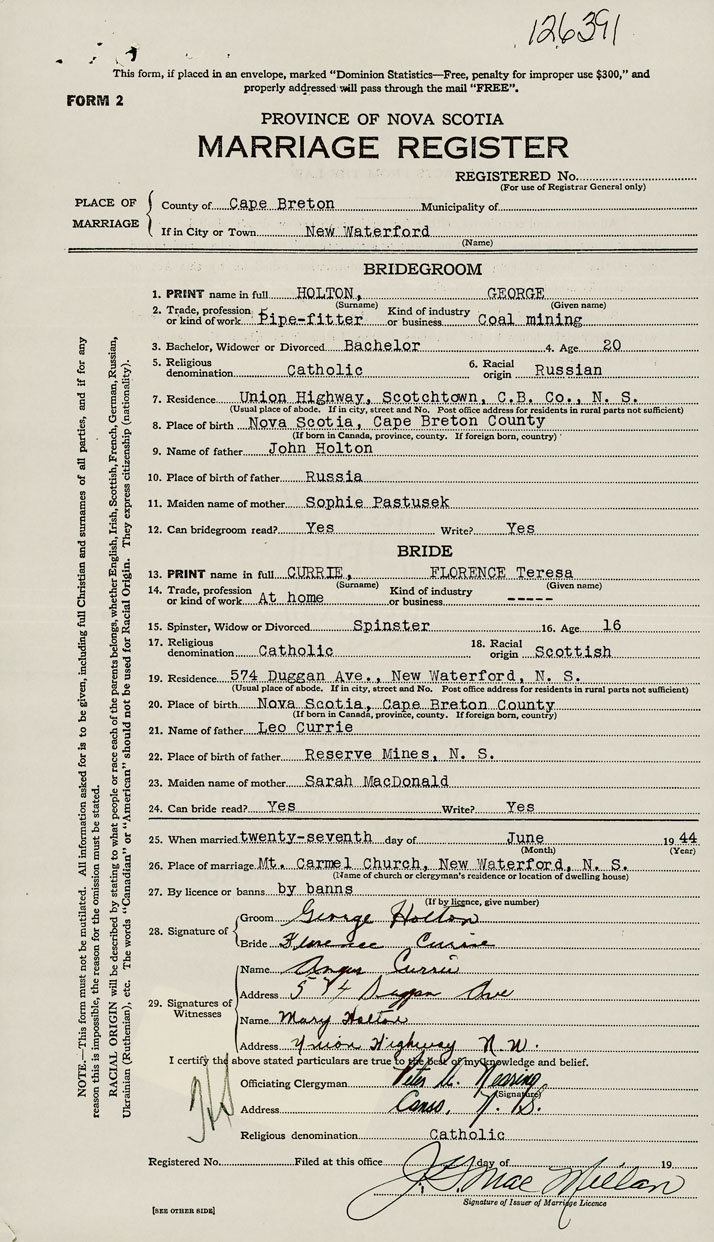 126391
This form, if placed in an envelope, marked "Dominion Statistics—Free, penalty for improper use $300," and
properly addressed will pass through the mail "FREE".
FORM 2
PROVINCE OF NOVA SCOTIA
MARRIAGE REGISTER
REGISTERED No.
(For use of Registrar General only)
PLACE OF MARRIAGE
County of Cape Breton Municipality of
If in City or Town New Waterford
(Name)
BRIDEGROOM
1. PRINT name in full HOLTON, GEORGE
(Surname) (Given name)
2. Trade, profession or kind of work Pipe-fitter Kind of industry or business Coal mining
3. Bachelor, Widower or Divorced Bachelor 4. Age 20
5. Religious denomination Catholic 6. Racial origin Russian
7. Residence Union Highway, Scotchtown, C.B. Co., N. S.
(Usual place of abode. If in city, street and No. Post office address for residents in rural parts not sufficient)
8. Place of birth Nova Scotia, Cape Breton County
(If born in Canada, province, county. If foreign born, country)
9. Name of father John Holton
10. Place of birth of father Russia
11. Maiden name of mother Sophie Pastusek
12. Can bridegroom read? Yes Write? Yes
BRIDE
13. PRINT name in full CURRIE, FLORENCE Teresa
(Surname) (Given name)
14. Trade, profession or kind of work At home Kind of industry or business -----
15. Spinster, Widow or Divorced Spinster 16. Age 16
17. Religious denomination Catholic 18. Racial origin Scottish
19. Residence 574 Duggan Ave., New Waterford, N. S.
(Usual place of abode. If in city, street and No. Post office address for residents in rural parts not sufficient)
20. Place of birth Nova Scotia, Cape Breton County
(If born in Canada, province, county. If foreign born, country)
21. Name of father Leo Currie
22. Place of birth of father Reserve Mines, N. S.
23. Maiden name of mother Sarah MacDonald
24. Can bride read? Yes Write? Yes
25. When married twenty-seventh day of June 19 44
(Month) (Year)
26. Place of marriage Mt. Carmel Church, New Waterford, N. S.
(Name of church or clergyman's residence or location of dwelling house)
27. By licence or banns by banns
(If by licence, give number)
28. Signature of
Groom George Holton
Bride Florence Currie
29. Signatures of Witnesses
Name Angus Currie
Address 574 Duggan Ave
Name Mary Holton
Address Union Highway N.W.
I certify the above stated particulars are true to the best of my knowledge and belief.
Officiating Clergyman Peter A. Nearing
(Signature)
Address Canso, N.S.
Religious denomination Catholic
Registered No. Filed at this office day of 19
J. G. MacMillan
Signature of Issuer of Marriage Licence
[SEE OTHER SIDE]
NOTE.—This form must not be mutilated. All information asked for is to be given, including full Christian and surnames of all parties, and if for any
reason this is impossible, the reason for the omission must be stated.
RACIAL ORIGIN will be described by stating to what people or race each of the parents belongs, whether English, Irish, Scottish, French, German, Russian,
Ukrainian (Ruthenian), etc. The words "Canadian" or "American" should not be used for Racial Origin. They express citizenship (nationality).